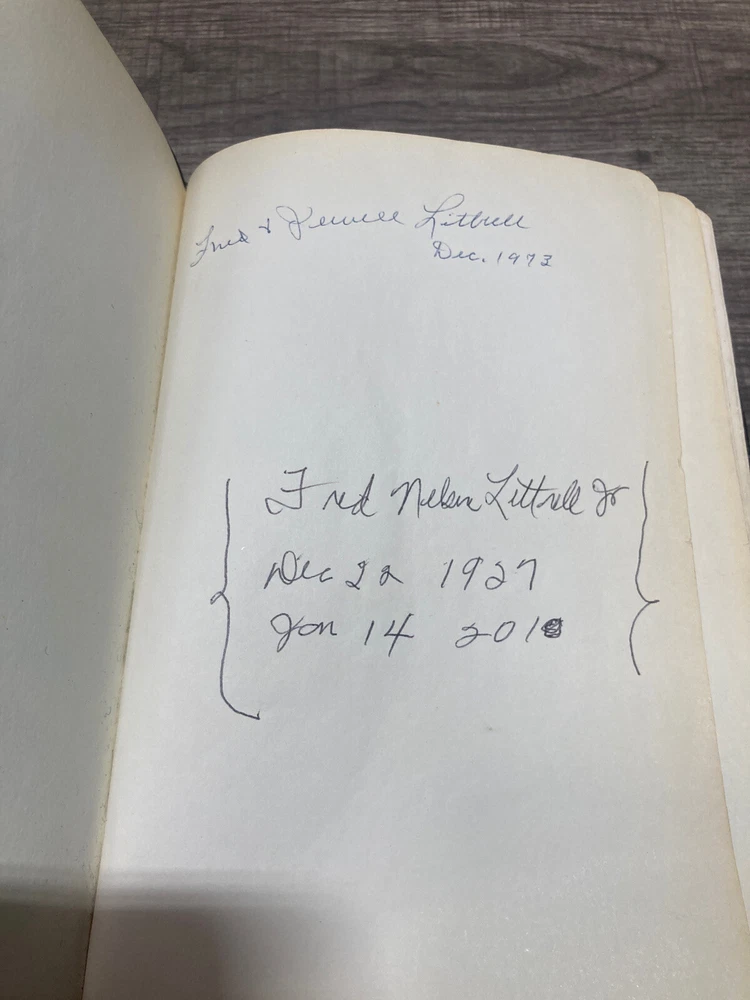 Fred & Jewell Littrell
Dec. 1973
Fred Nelson Littrell Jr
Dec 22 1927
Jan 14